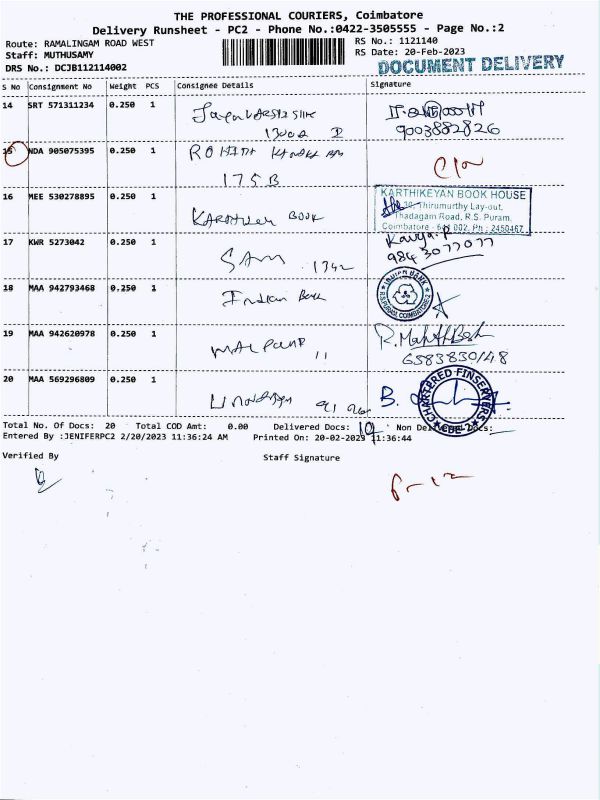 THE PROFESSIONAL COURIERS, Coimbatore
Delivery Runsheet - PC2 - Phone No.:0422-3505555 - Page No.:2
Route: RAMALINGAM ROAD WEST
RS No.: 1121140
Staff: MUTHUSAMY
RS Date: 20-Feb-2023
DRS No.: DCJB112114002
DOCUMENT DELIVERY
S No Consignment No Weight PCS Consignee Details Signature
14 SRT 571311234 0.250 1
9003882826
15 NDA 905075395 0.250 1 ROHITH
175 B
16 MEE 530278895 0.250 1 BOOK
KARTHIKEYAN BOOK HOUSE
Thirumurthy Lay-out,
Thadagam Road, R.S. Puram,
Coimbatore - 641 002. Ph : 2450467
17 KWR 5273042 0.250 1 SAM 1342
Kavya.R
9843077077
18 MAA 942793468 0.250 1 Indian Bank
INDIAN BANK
R.S.PURAM, COIMBATORE-2
19 MAA 942620978 0.250 1 11
6583830148
20 MAA 569296809 0.250 1
B.
CHARTERED FINSERVERS
CBE-2
Total No. Of Docs: 20 Total COD Amt: 0.00 Delivered Docs: 19 Non Delivered Docs:
Entered By :JENIFERPC2 2/20/2023 11:36:24 AM Printed On: 20-02-2023 11:36:44
Verified By Staff Signature